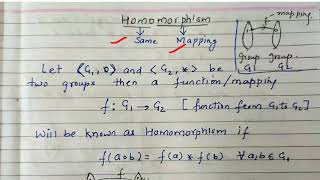 Homomorphism
Same Mapping
f mapping.
Group Group
G1 G2
Let (G1, o) and <G2, *> be
two groups then a function/mapping
f: G1 → G2 [function from G1 to G2]
Will be known as Homomorphism if
f(aob) = f(a) * f(b) ∀ a,b ∈ G1
f